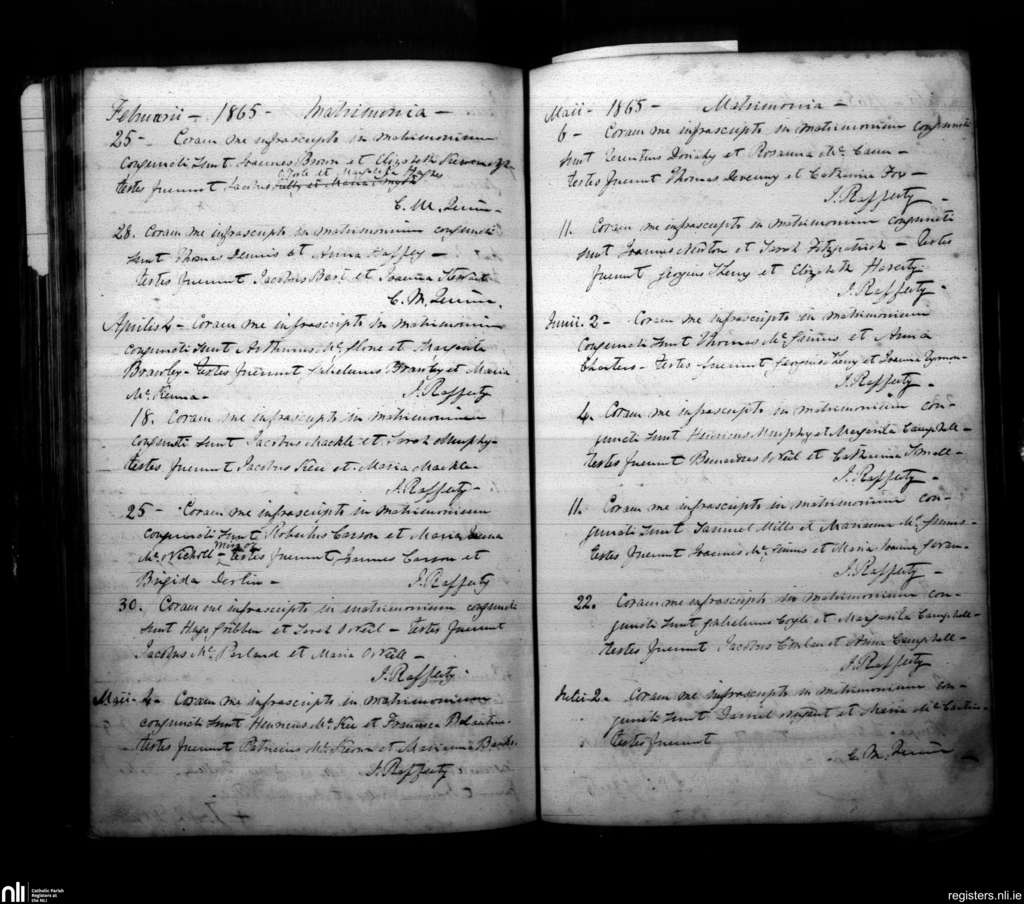 Februarii - 1865 - Matrimonia -
25 - Coram me infrascripto in matrimonium
conjuncti sunt Joannes Brown et Elizabeth
O'Toole et Margarita Hughes
testes fuerunt Jacobus et Maria
C. M. Quinn -
28. Coram me infrascripto in matrimonium conjuncti
sunt Thomas Dennis et Anna Haffey -
testes fuerunt Jacobus et Joanna Stewart
C. M. Quinn.
Aprilis 4 - Coram me infrascripto in matrimonium
conjuncti sunt Arthurus Mc Alone et Margarita
Brawley - testes fuerunt Gulielmus Brawley et Maria
Mc Kenna - J. Rafferty
18. Coram me infrascripto in matrimonium
conjuncti sunt Jacobus Mackle et Sarah Murphy -
testes fuerunt Jacobus et Maria Mackle -
J. Rafferty -
25 - Coram me infrascripto in matrimonium
conjuncti sunt Robertus Carson et Maria Anna
Mc Nicholl - testes fuerunt Joannes Carson et
Brigida Devlin - J. Rafferty
30. Coram me infrascripto in matrimonium conjuncti
sunt Hugo Gribben et Sarah O'Neil - testes fuerunt
Jacobus Mc Parland et Maria O'Neill -
J. Rafferty -
Maii - 4 - Coram me infrascripto in matrimonium
conjuncti sunt Henricus Mc Kee et Francisca
testes fuerunt Patricius Mc et Marianna Banks.
J. Rafferty
Maii - 1865 - Matrimonia -
6 - Coram me infrascripto in matrimonium conjuncti
sunt Terentius Donahy et Rosanna Mc Cann -
testes fuerunt Thomas Devenny et Catherina Fox -
J. Rafferty -
11. Coram me infrascripto in matrimonium conjuncti
sunt Joannes Newton et Sarah Fitzpatrick - testes
fuerunt Georgius et Elizabeth
J. Rafferty -
Junii. 2 - Coram me infrascripto in matrimonium
conjuncti sunt Thomas Mc Ginnis et Anna
Charters - testes fuerunt Georgius et Joanna
J. Rafferty -
4. Coram me infrascripto in matrimonium con-
juncti sunt Henricus Murphy et Margarita Campbell -
testes fuerunt Bernardus O'Neil et Catherina Small -
J. Rafferty -
11. Coram me infrascripto in matrimonium con-
juncti sunt Samuel Mills et Marianna Mc Ginnis -
testes fuerunt Joannes Mc Ginnis et Maria Joanna
J. Rafferty -
22. Coram me infrascripto in matrimonium con-
juncti sunt Gulielmus Coyle et Margarita Campbell -
testes fuerunt Jacobus Conlan et Anna Campbell -
J. Rafferty
Julii 2 - Coram me infrascripto in matrimonium con-
juncti sunt Daniel Nugent et Maria Mc
testes fuerunt
C. M. Quinn -
nli
Catholic Parish
Registers at
the NLI
registers.nli.ie